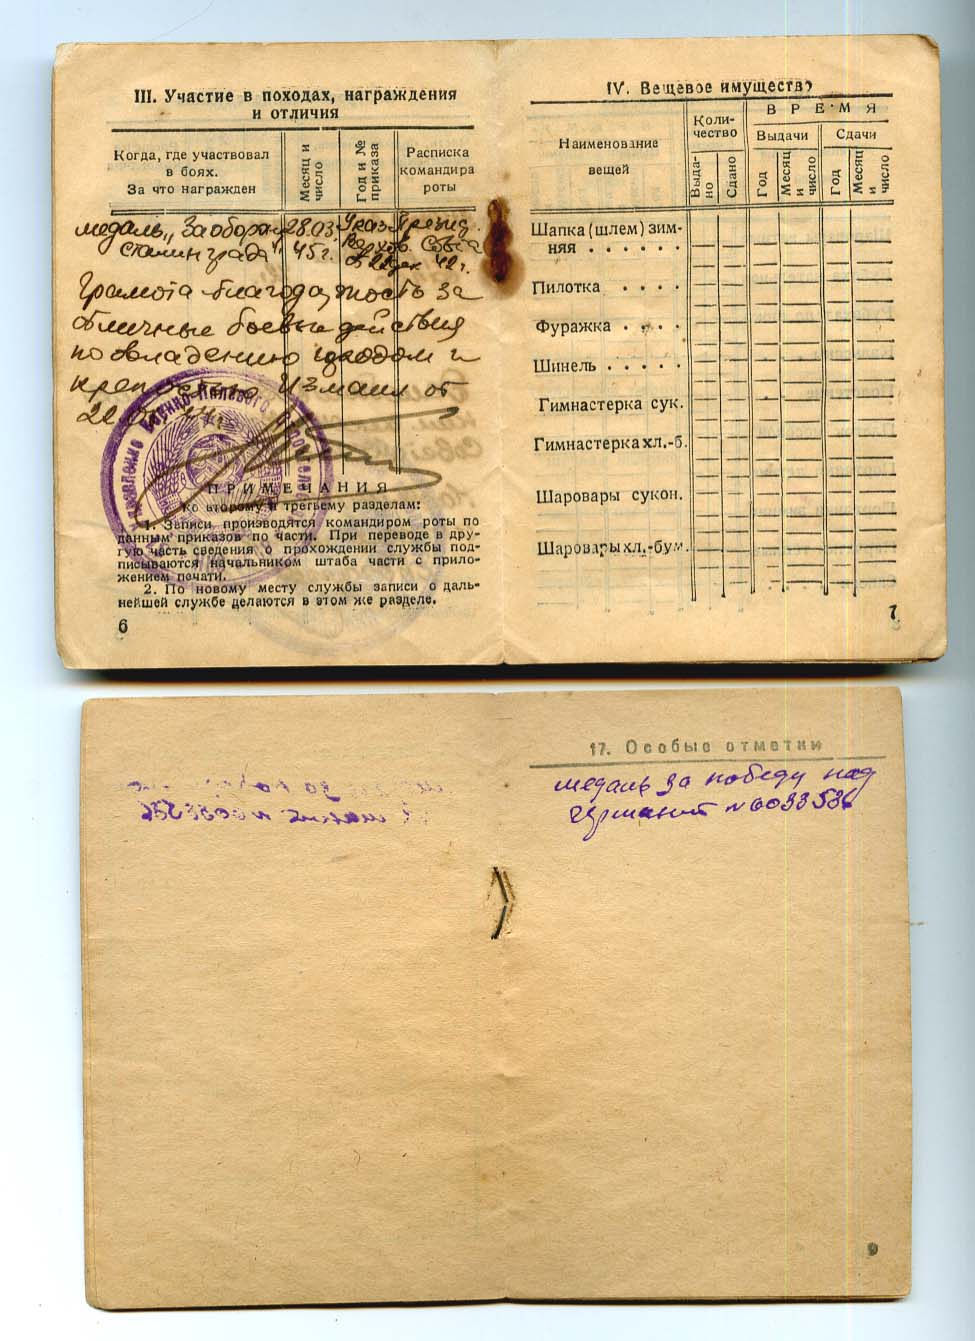 III. Участие в походах, награждения
и отличия
Когда, где участвовал
в боях.
За что награжден
Месяц и
число
Год и №
приказа
Расписка
командира
роты
медаль „За оборону 28.03 Указ Презид.
Сталинграда" 45 г. Верхов. Совета
от 22 дек 42 г.
Грамота благодарность за
отличные боевые действия
по овладению городом и
крепостью Измаил от
ПРИМЕЧАНИЯ
ко второму и третьему разделам:
1. Записи производятся командиром роты по
данным приказов по части. При переводе в дру-
гую часть сведения о прохождении службы под-
писываются начальником штаба части с прило-
жением печати.
2. По новому месту службы записи о даль-
нейшей службе делаются в этом же разделе.
6
IV. Вещевое имущество
Наименование
вещей
Коли-
чество
ВРЕМЯ
Выдачи
Сдачи
Выда-
но
Сдано
Год
Месяц
и
число
Год
Месяц
и
число
Шапка (шлем) зим-
няя . . . . . .
Пилотка . . . .
Фуражка . . . .
Шинель . . . . .
Гимнастерка сук.
Гимнастерка хл.-б.
Шаровары сукон.
Шаровары хл.-бум.
7
17. Особые отметки
медаль за победу над
Германией № 0033536
9